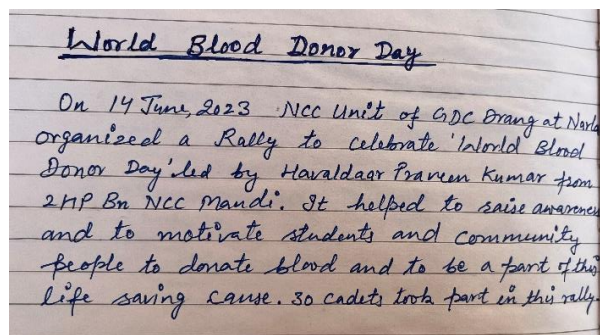 World Blood Donor Day
On 14 June, 2023 NCC Unit of GDC Drang at Narla
organized a Rally to celebrate 'World Blood
Donor Day' led by Havaldaar Praveen Kumar from
2HP Bn NCC Mandi. It helped to raise awareness
and to motivate students and community
people to donate blood and to be a part of this
life saving cause. 30 cadets took part in this rally.